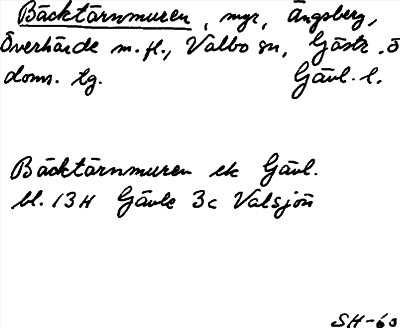 Bäcktärnmuren, myr, Ängsberg,
Överhärde m.fl., Valbo sn, Gästr. ö
doms. lg. Gävl. l.
Bäcktärnmuren ek Gävl.
bl. 13H Gävle 3c Valsjön
SH-60